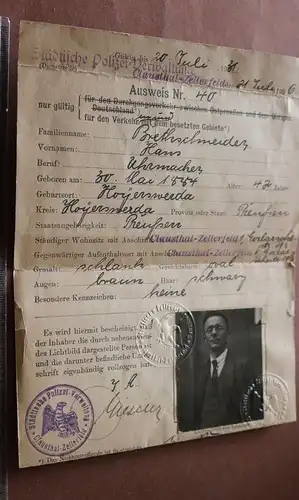 Gültig bis 20 Juli 19
Städtische Polizei-Verwaltung
Clausthal-Zellerfeld
Ausweis Nr. 40
nur gültig
für den Durchgangsverkehr zwischen Ostpreußen und dem übrigen
Deutschland*)
für den Verkehr im besetzten Gebiete*)
Familienname: Brettschneider
Vornamen: Hans
Beruf: Uhrmacher
Geboren am: 30. Mai 1884 Alter: 42 Jahre
Geburtsort: Hoyerswerda
Kreis: Hoyerswerda Provinz oder Staat: Preußen
Staatsangehörigkeit: Preußen
Ständiger Wohnsitz mit Anschrift: Clausthal-Zellerfeld
Gegenwärtiger Aufenthaltsort mit Anschrift: Clausthal-Zellerfeld
Gestalt: schlank Gesichtsform: oval
Augen: braun Haar: schwarz
Besondere Kennzeichen: keine
Es wird hiermit bescheinigt,
der Inhaber die durch nebenstehendes
Lichtbild dargestellte Person ist
und die darunter befindliche Unter-
schrift eigenhändig vollzogen hat.
Städtische Polizei-Verwaltung
Clausthal-Zellerfeld